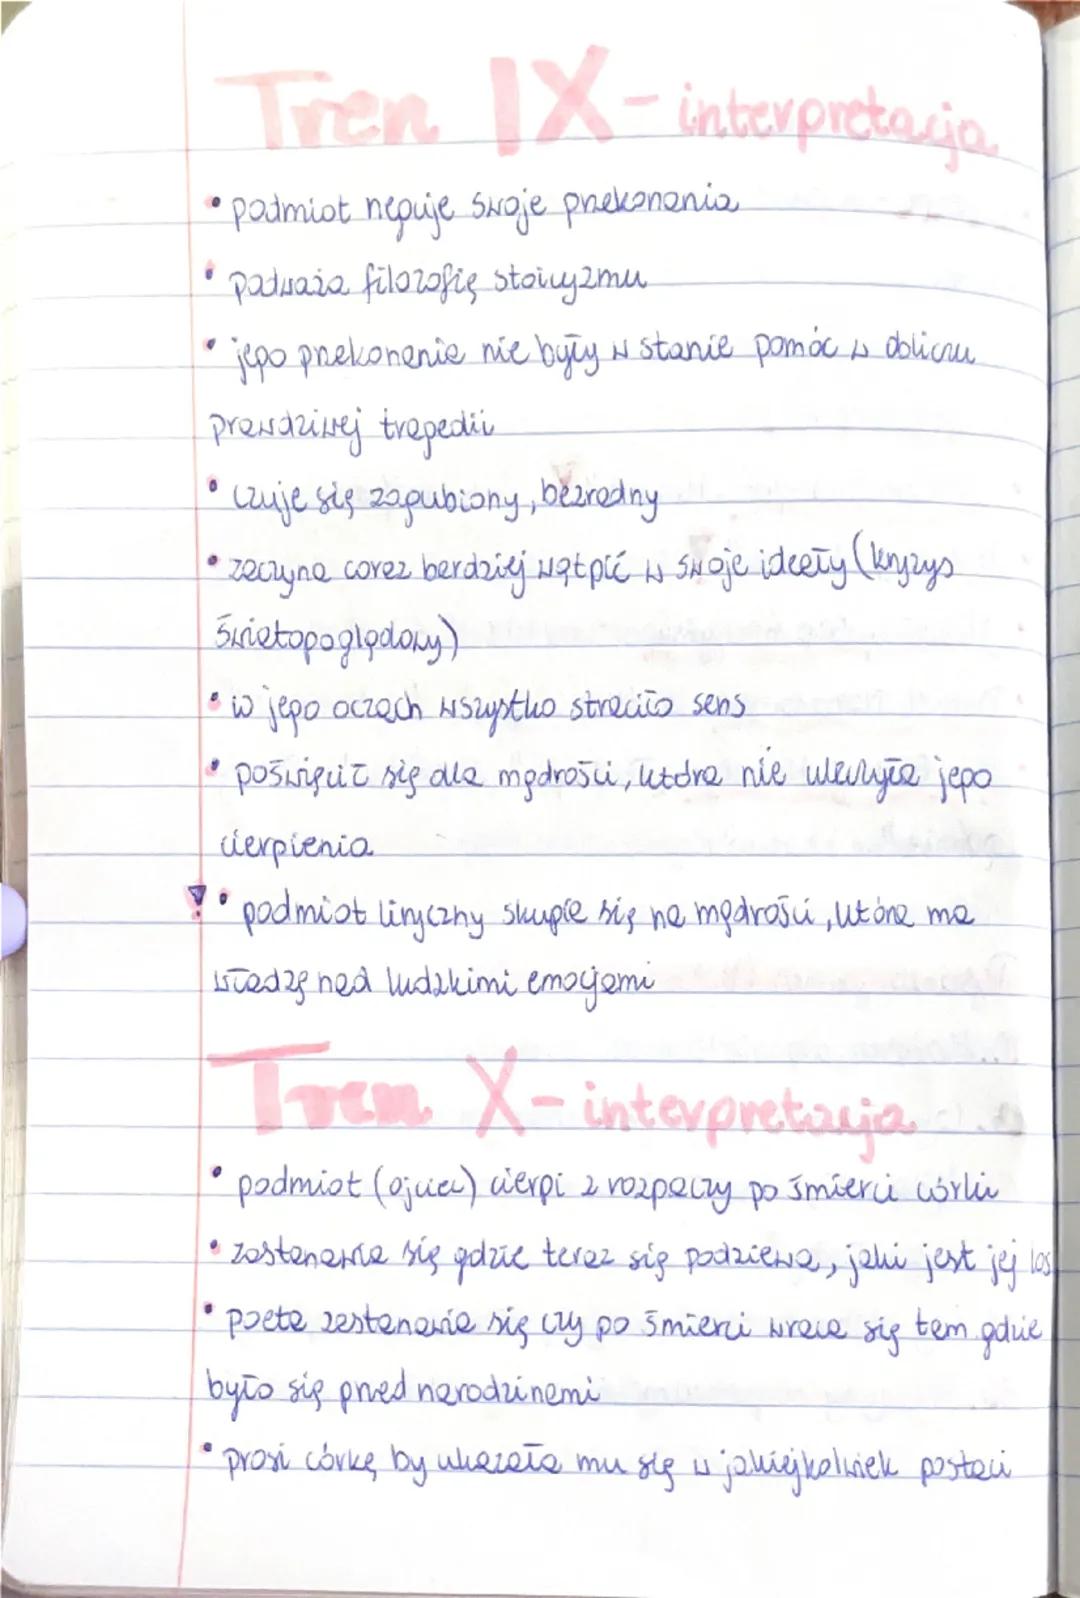 Tren IX - interpretacja
• podmiot neguje swoje przekonania
• podważa filozofię stoicyzmu
• jego przekonania nie były w stanie pomóc w obliczu
prawdziwej tragedii
• czuje się zagubiony, bezradny
• zaczyna coraz bardziej wątpić w swoje ideały (kryzys
światopoglądowy)
• w jego oczach wszystko straciło sens
• poświęcił się dla mądrości, która nie uleczyła jego
cierpienia
• podmiot liryczny skupia się na mądrości, która ma
władzę nad ludzkimi emocjami
Tren X - interpretacja
• podmiot (ojciec) cierpi z rozpaczy po śmierci córki
• zastanawia się gdzie teraz się podziewa, jaki jest jej los
• poeta zastanawia się czy po śmierci wraca się tam gdzie
było się przed narodzinami
• prosi córkę by ukazała mu się w jakiejkolwiek postaci